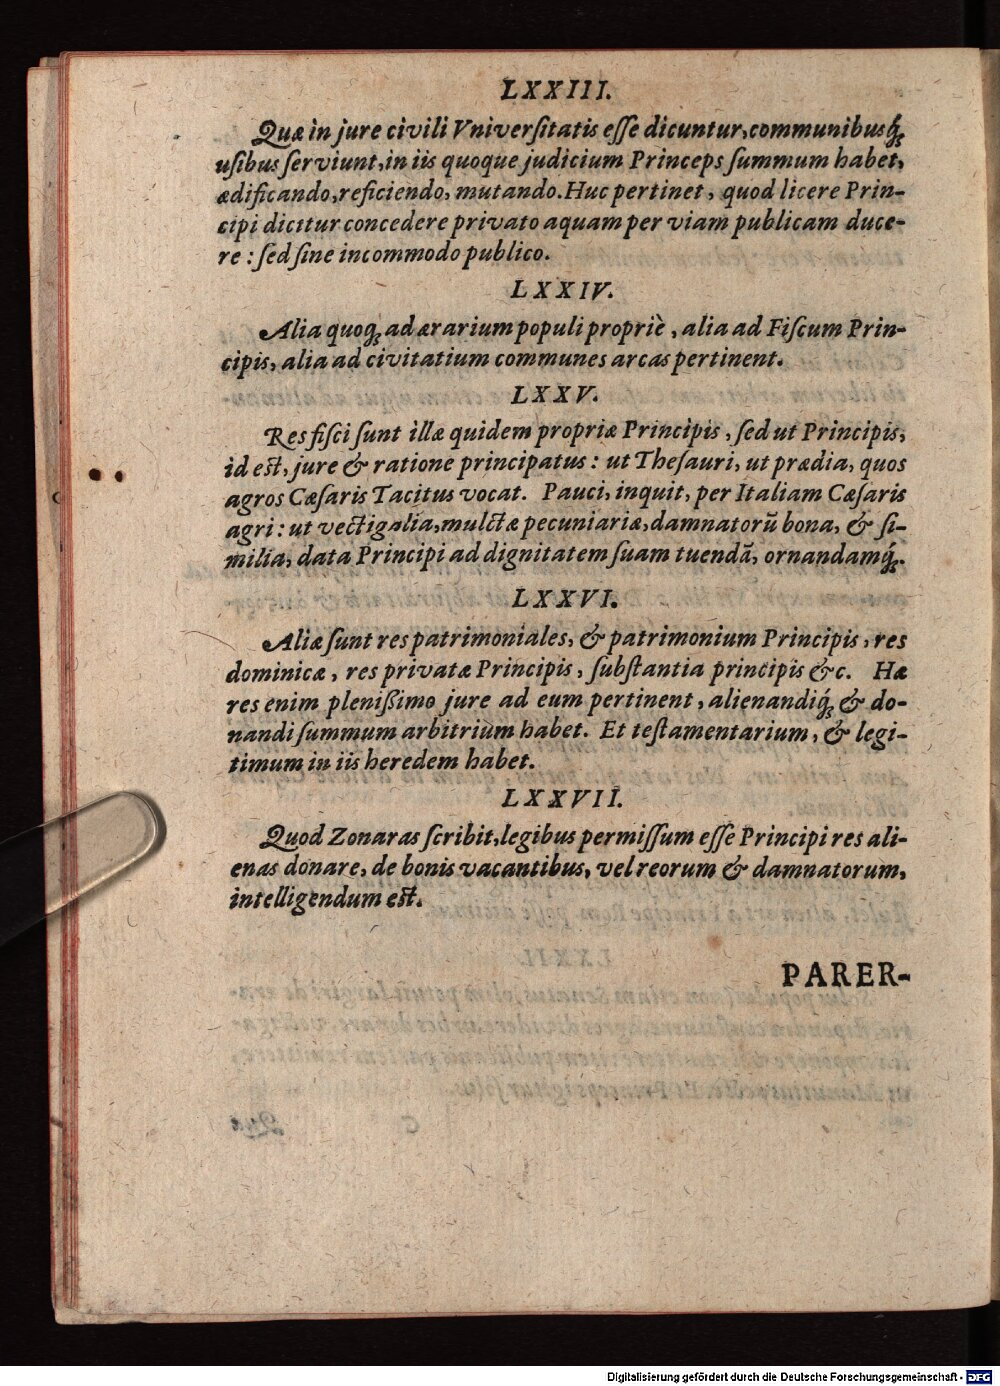 LXXIII.
Quæ in jure civili Vniverſitatis eſſe dicuntur, communibusq́ꝫ
uſibus ſerviunt, in iis quoque judicium Princeps ſummum habet,
ædificando, reficiendo, mutando. Huc pertinet, quod licere Prin-
cipi dicitur concedere privato aquam per viam publicam duce-
re: ſed ſine incommodo publico.
LXXIV.
Alia quoqꝫ ad ærarium populi propriè, alia ad Fiſcum Prin-
cipis, alia ad civitatium communes arcas pertinent.
LXXV.
Res fiſci ſunt illæ quidem propriæ Principis, ſed ut Principis,
id est, jure & ratione principatus: ut Theſauri, ut prædia, quos
agros Cæſaris Tacitus vocat. Pauci, inquit, per Italiam Cæſaris
agri: ut vectigalia, mulctæ pecuniariæ, damnatorū bona, & ſi-
milia, data Principi ad dignitatem ſuam tuendā, ornandamq́ꝫ.
LXXVI.
Aliæ ſunt res patrimoniales, & patrimonium Principis, res
dominicæ, res privatæ Principis, ſubſtantia principis &c. Hæ
res enim pleniſſimo jure ad eum pertinent, alienandiq́ꝫ & do-
nandi ſummum arbitrium habet. Et teſtamentarium, & legi-
timum in iis heredem habet.
LXXVII.
Quod Zonaras ſcribit, legibus permiſſum eſſe Principi res ali-
enas donare, de bonis vacantibus, vel reorum & damnatorum,
intelligendum est.
PARER-
Digitalisierung gefördert durch die Deutsche Forschungsgemeinschaft - DFG